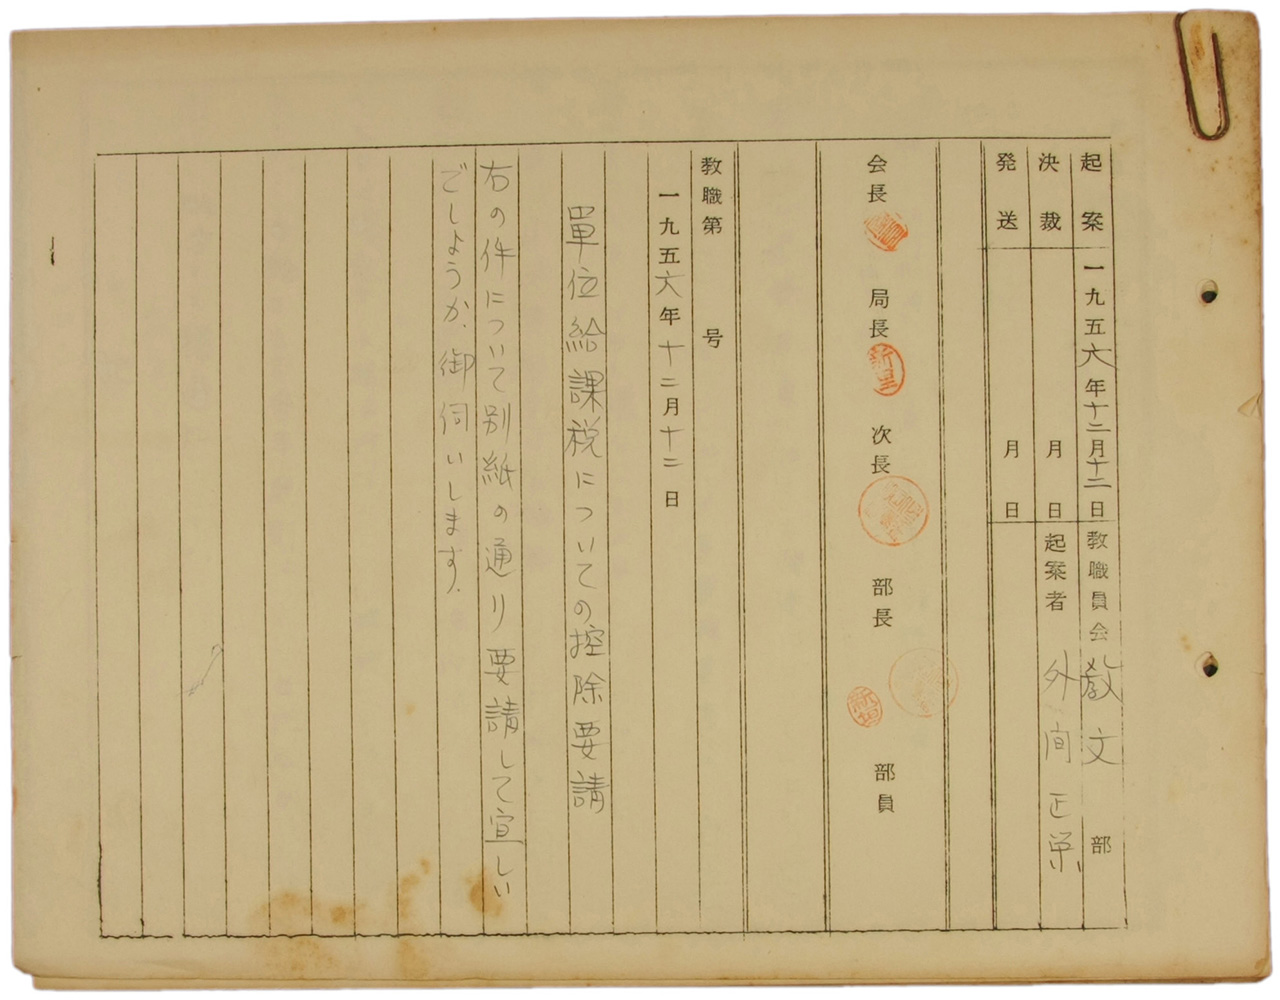 起案 一九五六年十二月十二日 教職員会教文部
決裁 月 日 起案者 外間正栄
発送 月 日
会長 局長 新里 次長 部長 新垣 部員
教職第 号
一九五六年十二月十二日
單位給課税についての控除要請
右の件について別紙の通り要請して宜しい
でしょうか、御伺いします。